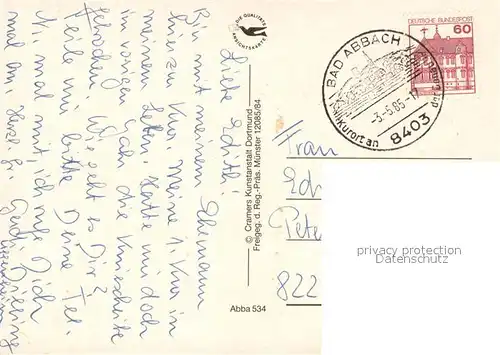 Liebe Edith!
Bin mit meinem Ehemann
hier zur Kur. Meine 1. Kur in
meinem Leben. Hatte mir doch
im vorigen Jahr die Kniescheibe
gebrochen. Wie geht es Dir?
Teile mir bitte Deine Tel.
Nr. mal mit, ich rufe Dich
mal an. Herzl. Gr.
DIE QUALITÄTS
ANSICHTSKARTE
© Cramers Kunstanstalt Dortmund
Freigeg. d. Reg.-Präs. Münster 12085/84
Abba 534
DEUTSCHE BUNDESPOST
60
BAD ABBACH
-3.-5.85-17
Heilkurort an
8403
Frau
Ed
Pete
822
privacy protection
Datenschutz